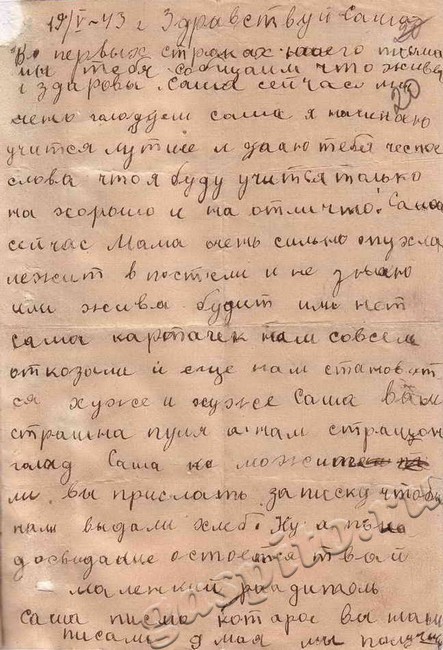 19/V-43 г Здравствуй Саша
Во первых строках нашего письма
мы тебя сообщаем что живы
і здоровы. Саша сейчас мы
чень голодуем саша я начинаю
учится лутше и даю тебе чесное
слова что я буду учится только
на хорошо и на отлично! Саша
сейчас Мама очень сильно опухла
лежит в постели и не знаю
или жива будит или нет
Саша карпачек нам совсем
откозали и еще нам становит
ся хуже и хуже Саша вам
страшна пуля а нам страшон
голад Саша не можите
ли вы прислать записку чтобы
нам выдали хлеба. Ну а пока
досвидание остоется твай
маленкий радитоль
Саша писмо которое вы нам
писали 9 мая мы получили
20
gaspito.ru